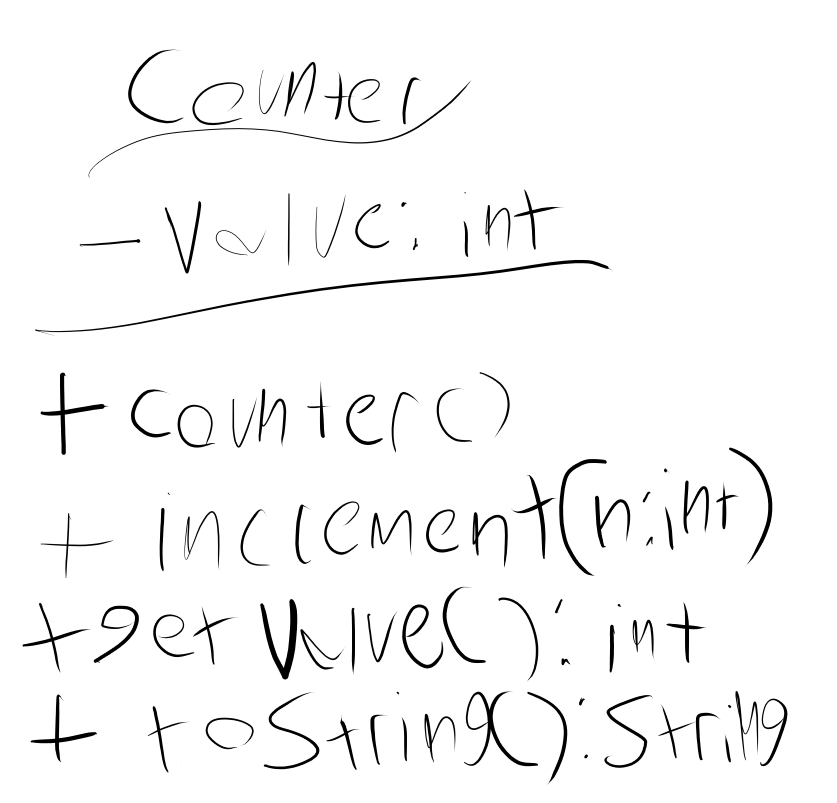 Counter
- Value: int
+ Counter()
+ increment(n:int)
+ getValue(): int
+ toString(): String